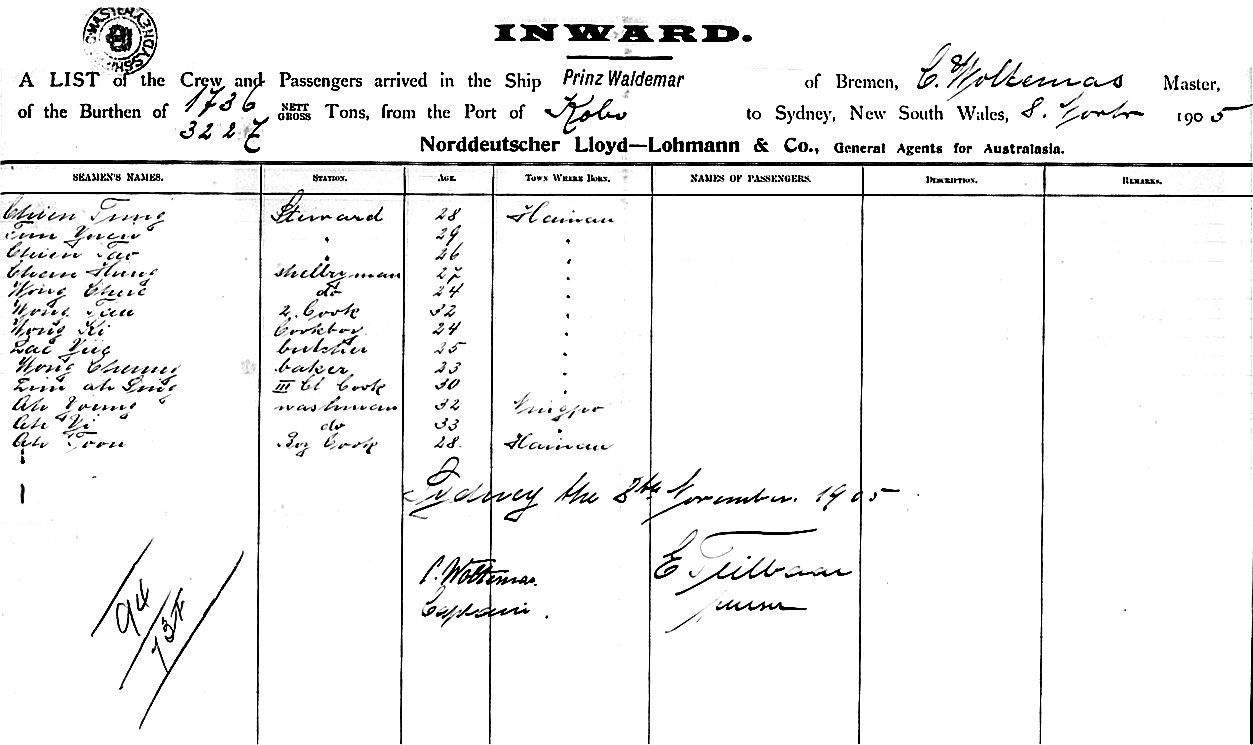 INWARD.
A LIST of the Crew and Passengers arrived in the Ship Prinz Waldemar of Bremen, C. Woltemas Master,
of the Burthen of 1736 NETT Tons, from the Port of Kobe to Sydney, New South Wales, 8. Novbr 1905
3227 GROSS
Norddeutscher Lloyd—Lohmann & Co., General Agents for Australasia.
SEAMEN'S NAMES. STATION. AGE. TOWN WHERE BORN. NAMES OF PASSENGERS. DESCRIPTION. REMARKS.
Steward 28 Hainan
" 29 "
" 26 "
Chan Hung 27 "
Wong do 24 "
Wong 2. Cook 32 "
Wong Ki Cookboy 24 "
butcher 25 "
Wong Chung baker 23 "
III Cl Cook 30 "
Ah Young washman 32 Ningpo
Ah Yi do 33 "
Ah Toon Boy Cook 28 Hainan
Sydney the 8th November. 1905
C. Woltemas. E
Captain. purser
94
134